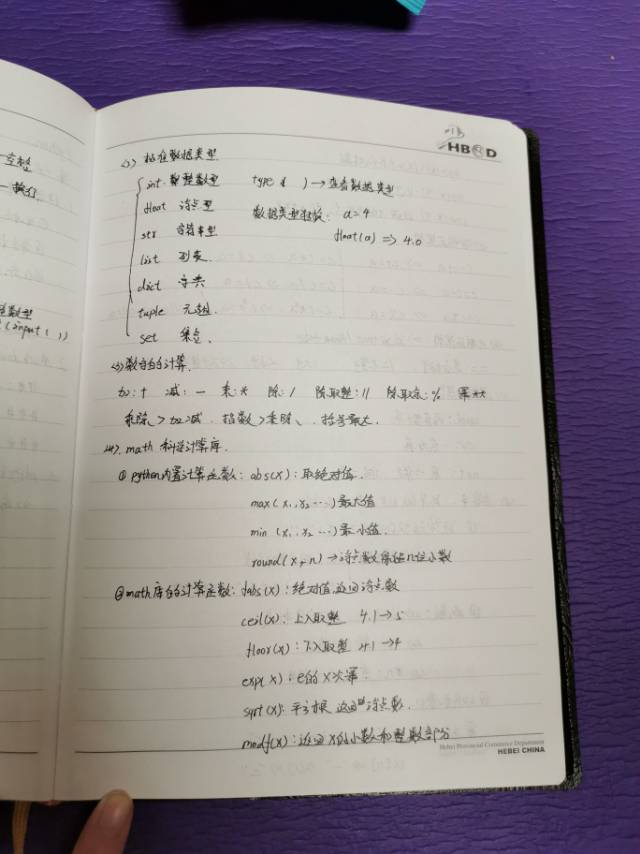 HB D
<2> 标准数据类型
int 整数型 type( ) → 查看数据类型
float 浮点型 数据类型转换: a=4
str 字符串型 float(a) => 4.0
list 列表
dict 字典
tuple 元组.
set 集合.
<3>数字的计算.
加:+ 减: — 乘:* 除:/ 除取整:// 除取余:% 幂**
乘除>加减. 指数>乘除、括号最大.
<4>. math 科学计算库.
① python内置计算函数: abs(x): 取绝对值.
max(x₁,x₂ ...) 最大值
min (x₁,x₂ ...) 最小值.
round(x, n) → 浮点数保留n位小数
②math库的计算函数: fabs(x): 绝对值,返回浮点数
ceil(x): 上入取整 4.1→5
floor(x): 下入取整 4.1→4
exp(x): e的x次幂
sqrt(x): 平方根 返回浮点数.
modf(x): 返回x的小数和整数部分
Hebei Provincial Commerce Department
HEBEI CHINA
空格
换行
整数型
(input( ))